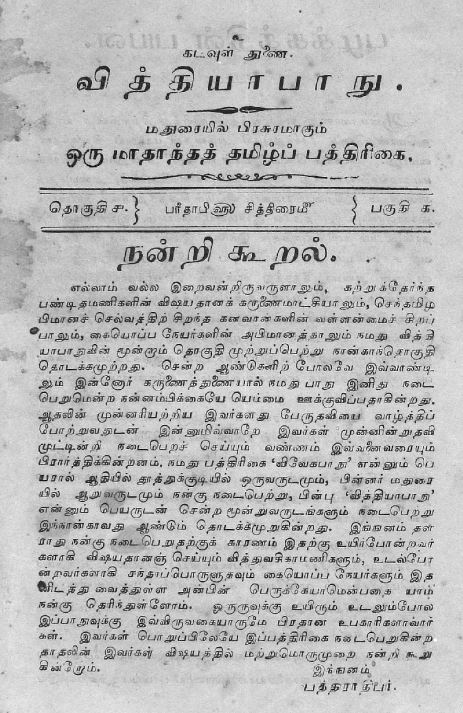 கடவுள் துணை.
வித்தியாபாநு.
மதுரையில் பிரசுரமாகும்
ஒரு மாதாந்தத் தமிழ்ப் பத்திரிகை.
தொகுதி ௪. பரீதாபி௵ சித்திரைமீ பகுதி ௧.
நன்றி கூறல்.
எல்லாம் வல்ல இறைவன்றிருவருளாலும், கற்றுக்தேர்ந்த
பண்டிதமணிகளின் விஷயதானக் கருணைமாட்சியாலும், செந்தமிழ
பிமானச் செல்வத்திற் சிறந்த கனவான்களின் வள்ளன்மைச் சிறப்
பாலும், கையொப்ப நேயர்களின் அபிமானத்தாலும் நமது வித்தி
யாபாதுவின் மூன்றாம் தொகுதி முற்றுப்பெற்று நான்காந்தொகுதி
தொடக்கமுற்றது. சென்ற ஆண்களிற் போலவே இவ்வாண்டி
லும் இன்னோர் கருணைத்துணையால் நமது பாநு இனிது நடை
பெறுமென்ற நன்னம்பிக்கையே யெம்மை ஊக்குவிப்பதாகின்றது.
ஆகலின் முன்னரியற்றிய இவர்களது பேருதவியை வாழ்த்திப்
போற்றுவதுடன் இன்னுமிவ்வாறே இவர்கள் முன்னின்றுதவி
முட்டின்றி நடைபெறச் செய்யும் வண்ணம் இவ்வனைவரையும்
பிரார்த்திக்கின்றனம். நமது பத்திரிகை 'விவேகபாநு' என்னும் பெ
யரால் ஆதியில் தூத்துக்குடியில் ஒருவருடமும், பின்னர் மதுரை
யில் ஆறுவருடமும் நன்கு நடைபெற்று, பின்பு 'வித்தியாபாநு'
என்னும் பெயருடன் சென்ற மூன்றுவருடங்களும் நடைபெற்று
இந்நான்காவது ஆண்டும் தொடக்கமுறுகின்றது. இங்ஙனம் தள
ராது நன்கு நடைபெறுதற்குக் காரணம் இதற்கு உயிர்போன்றவர்
களாகி விஷயதானஞ் செய்யும் வித்துவசிகாமணிகளும், உடல்போ
ன்றவர்களாகி சந்தாப்பொருளுதவும் கையொப்ப நேயர்களும் இத
னிடத்து வைத்துள்ள அன்பின் பெருக்கேயாமென்பதை யாம்
நன்கு தெரிந்துள்ளோம். ஒருருவுக்கு உயிரும் உடலும்போல
இப்பாநுவுக்கு இவ்விருவகையாருமே பிரதான உபகாரிகளாவார்
கள். இவர்கள் பொறுப்பிலேயே இப்பத்திரிகை நடைபெறுகின்ற
தாதலின் இவர்கள் விஷயத்தில் மற்றுமொருமுறை நன்றி கூறு
கின்றோம்.
இங்ஙனம்,
பத்திராதிபர்.